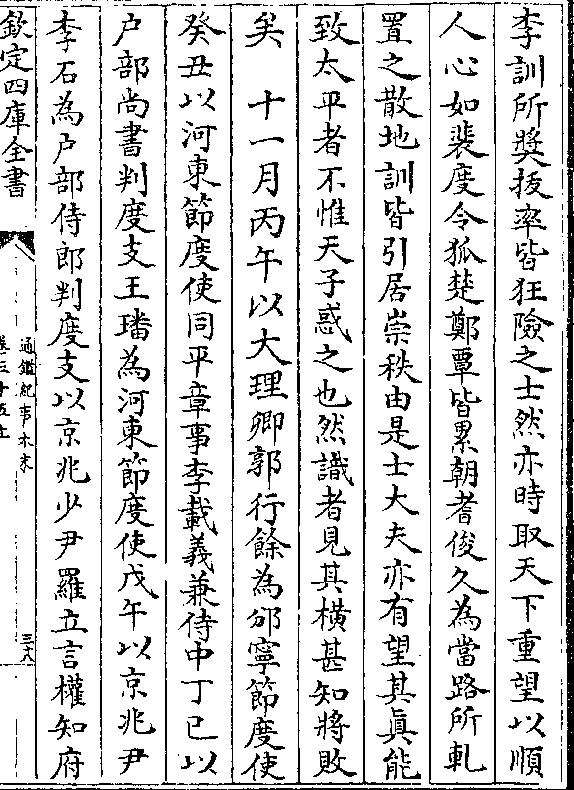 李訓所奬拔率皆狂險之士然亦時取天下重望以順
人心如裴度令狐楚鄭覃皆累朝耆俊久為當路所軋
置之散地訓皆引居崇秩由是士大夫亦有望其眞能
致太平者不惟天子惑之也然識者見其橫甚知將敗
矣　十一月丙午以大理卿郭行餘為邠寧節度使
癸丑以河東節度使同平章事李載義兼侍中丁巳以
户部尚書判度支王璠為河東節度使戊午以京兆尹
李石為户部侍郎判度支以京兆少尹羅立言權知府
欽定四庫全書
通鑑紀事本末
卷三十五上
三八